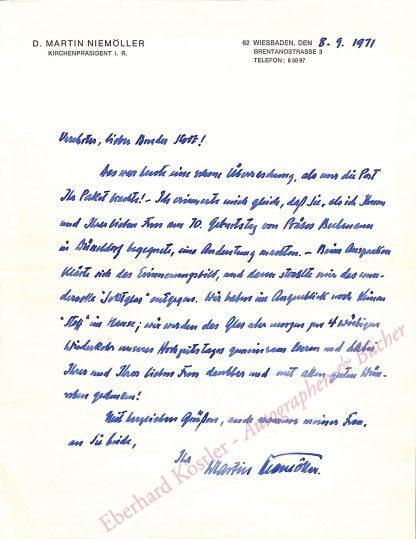 D. MARTIN NIEMÖLLER
KIRCHENPRÄSIDENT I. R.
62 WIESBADEN, DEN 8. 9. 1971
BRENTANOSTRASSE 3
TELEFON: 8 50 97
Verehrter, lieber Bruder Stotz!
Das war heute eine schöne Überraschung, als uns die Post
Ihr Paket brachte! - Ich erinnerte mich gleich, daß Sie, als ich Ihnen
und Ihrer lieben Frau am 70. Geburtstag von Präses Beckmann
in Düsseldorf begegnete, eine Andeutung machten. - Beim Auspacken
klärte sich das Erinnerungsbild, und dann strahlte mir das wun-
dervolle "Sektglas" entgegen. Wir haben im Augenblick noch keinen
"Stoff" im Hause; wir werden das Glas aber morgen zur 4. würdigen
Wiederkehr unseres Hochzeitstages gemeinsam leeren und dabei
Ihrer und Ihrer lieben Frau dankbar und mit allen guten Wün-
schen gedenken!
Mit herzlichen Grüßen, auch namens meiner Frau,
an Sie beide,
Ihr Martin Niemöller.
Eberhard Köstler - Autographen & Bücher